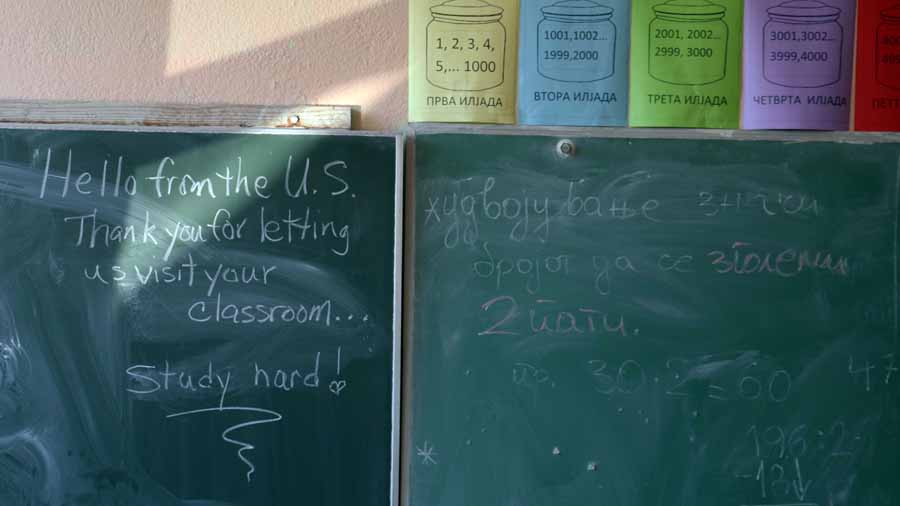 1, 2, 3, 4,
5,... 1000
ПРВА ИЛЈАДА
1001,1002...
1999,2000
ВТОРА ИЛЈАДА
2001, 2002...
2999, 3000
ТРЕТА ИЛЈАДА
3001,3002...
3999,4000
ЧЕТВРТА ИЛЈАДА
Hello from the U.S.
Thank you for letting
us visit your
classroom...
Study hard!
удвојување значи
бројот да се зголеми
2 пати.
пр. 30·2=60
47
196:2